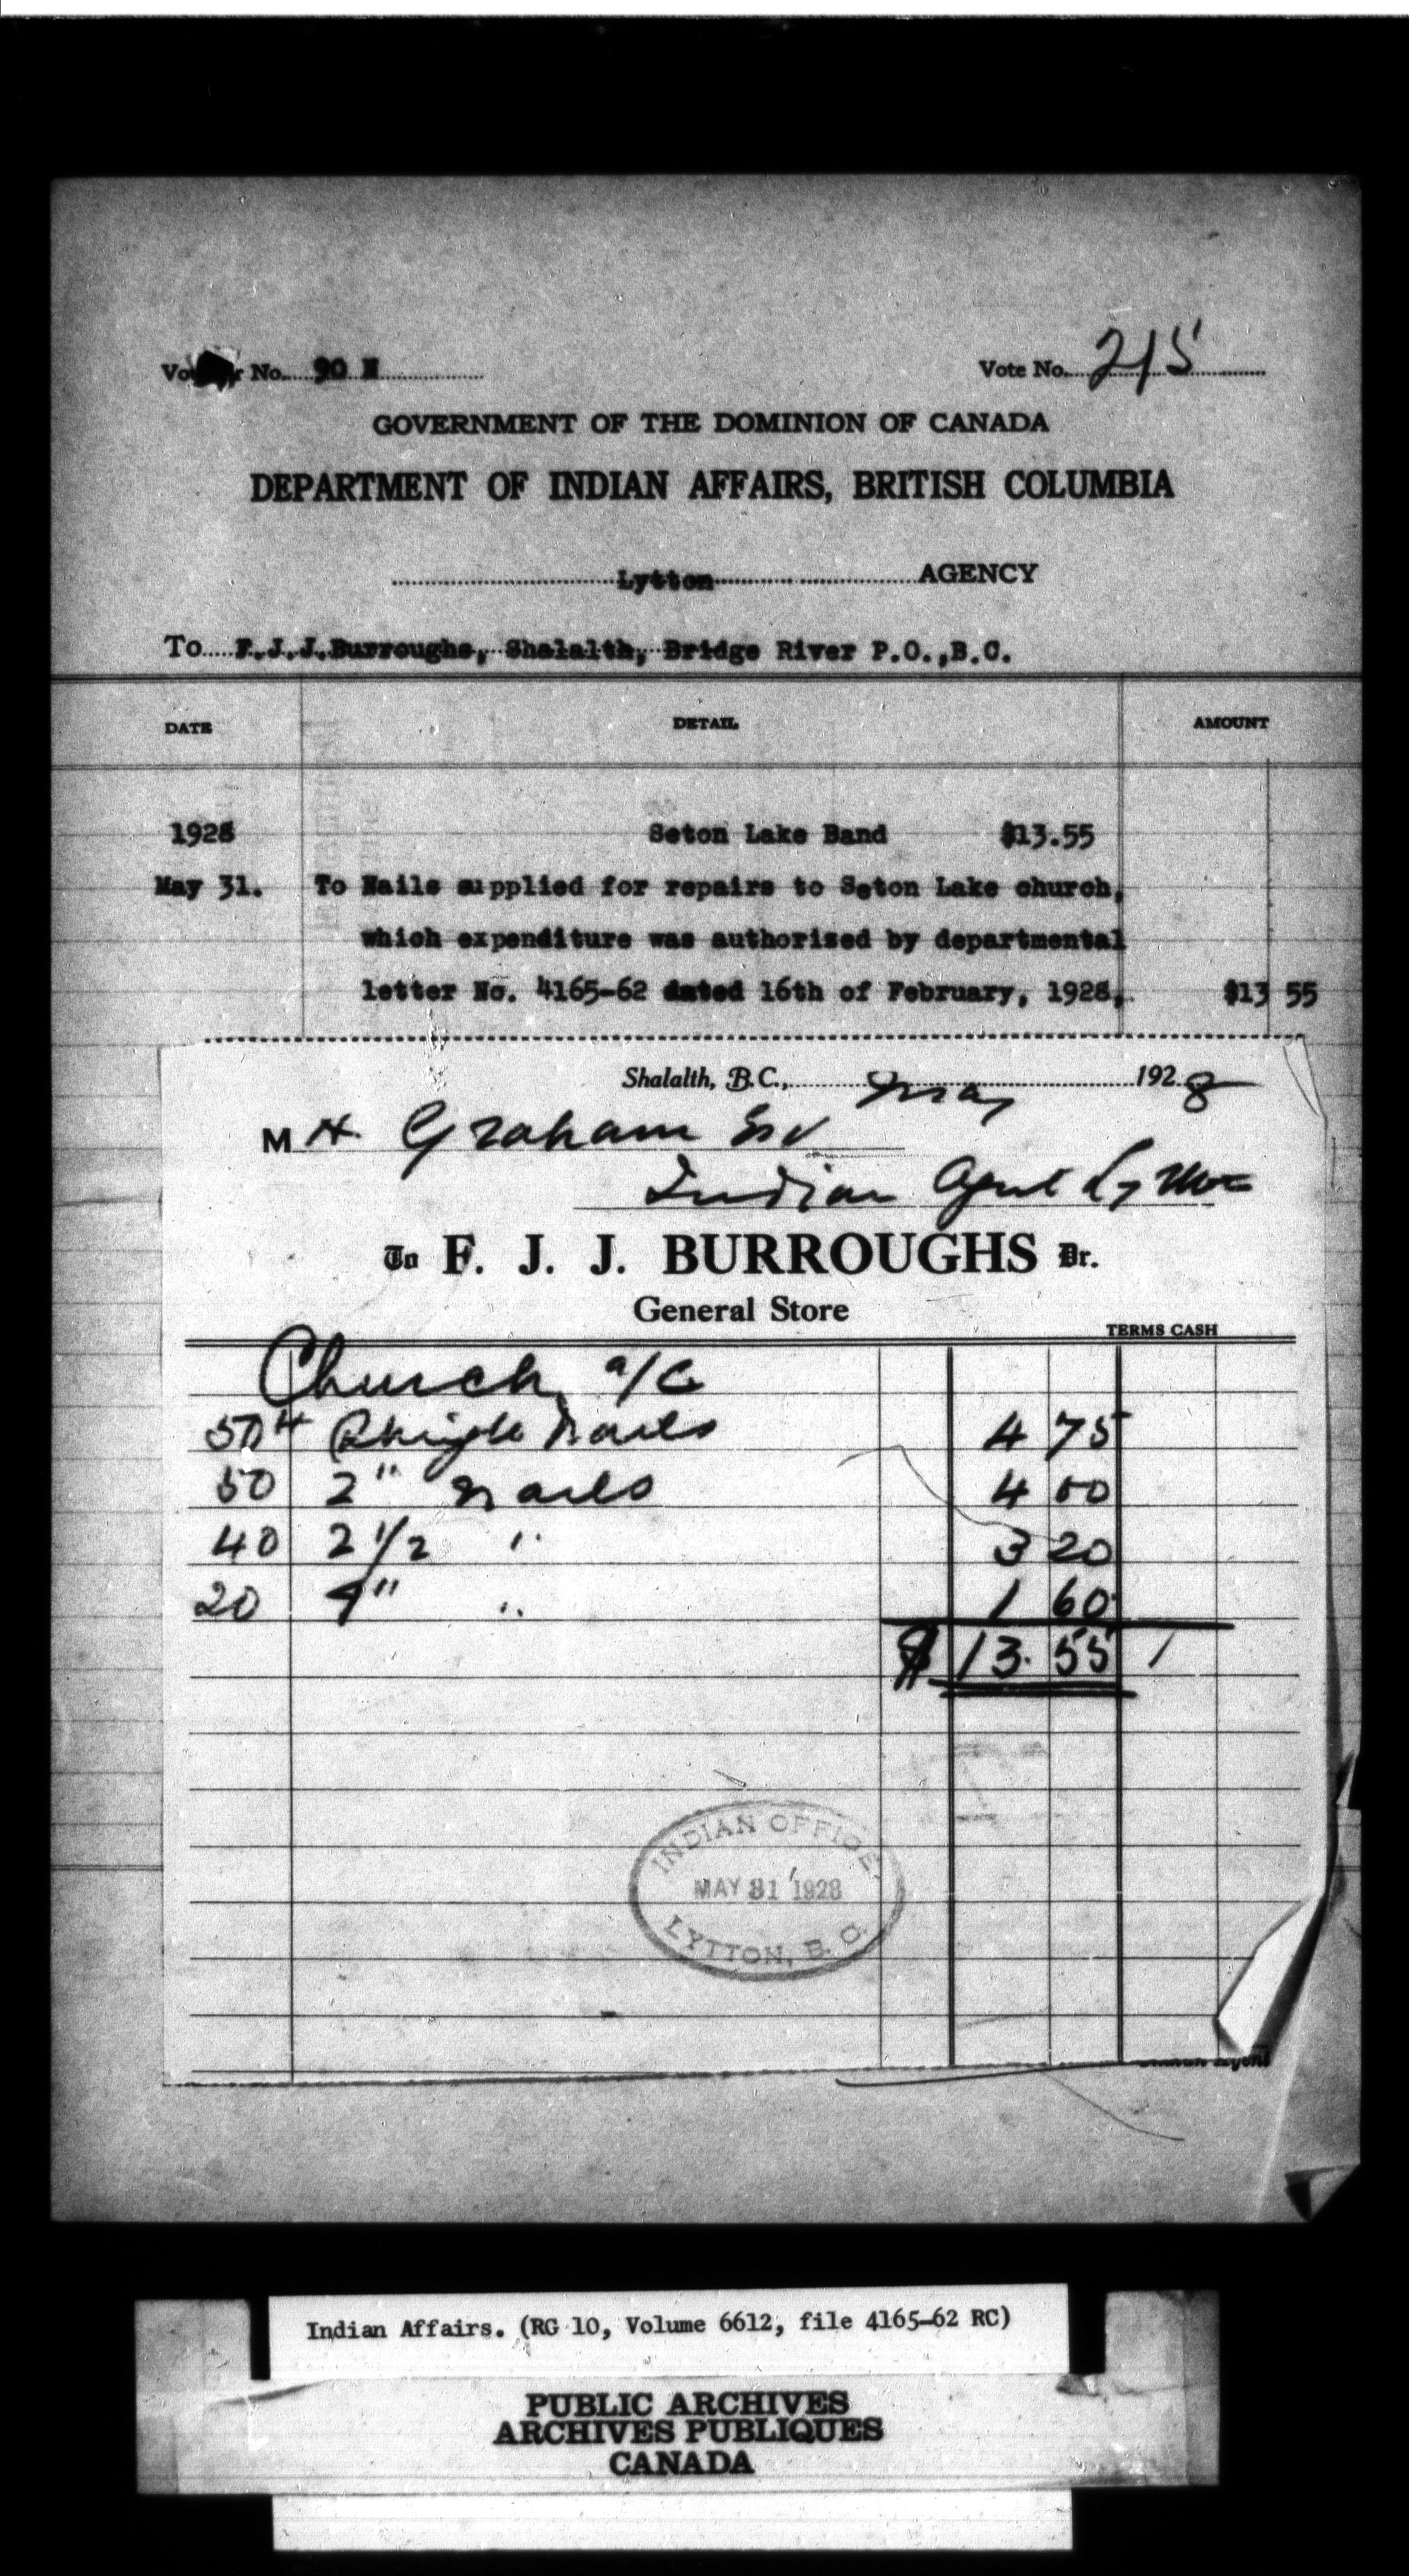 No. 90 N
Vote No. 215
GOVERNMENT OF THE DOMINION OF CANADA
DEPARTMENT OF INDIAN AFFAIRS, BRITISH COLUMBIA
Lytton AGENCY
To F.J.J.Burroughs, Shalalth, Bridge River P.O.,B.C.
DATE DETAIL AMOUNT
1928 Seton Lake Band $13.55
May 31. To Nails supplied for repairs to Seton Lake church,
which expenditure was authorised by departmental
letter No. 4165-62 dated 16th of February, 1928,. $13 55
Shalalth, B.C., May 1928
M H. Graham Esq
Indian Agent Lytton
To F. J. J. BURROUGHS Dr.
General Store
TERMS CASH
Church a/c
50 # Shingle Nails 4 75
50 2" Nails 4 00
40 2 1/2 " 3 20
20 4" " 1 60
$ 13. 55
INDIAN OFFICE,
MAY 31 1928
LYTTON, B. C.
Indian Affairs. (RG 10, Volume 6612, file 4165-62 RC)
PUBLIC ARCHIVES
ARCHIVES PUBLIQUES
CANADA